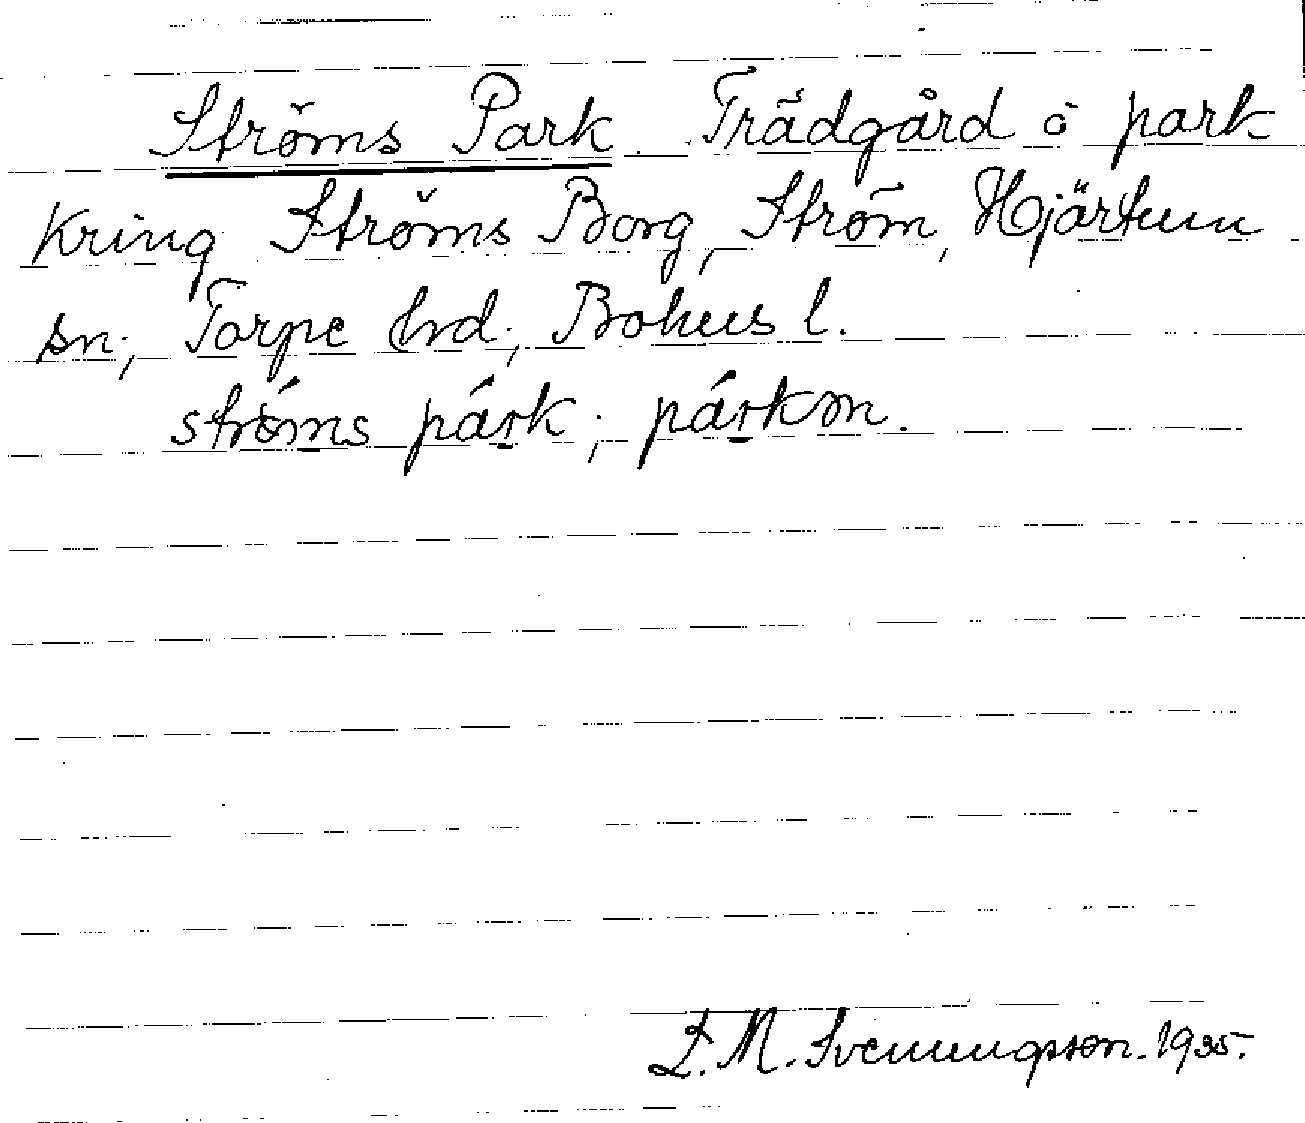 Ströms Park. Trädgård o park
kring Ströms Borg, Ström, Hjärtum
sn; Torpe hrd; Bohus l.
strǿms párk; párkøn.
L. M. Svenungsson. 1935.